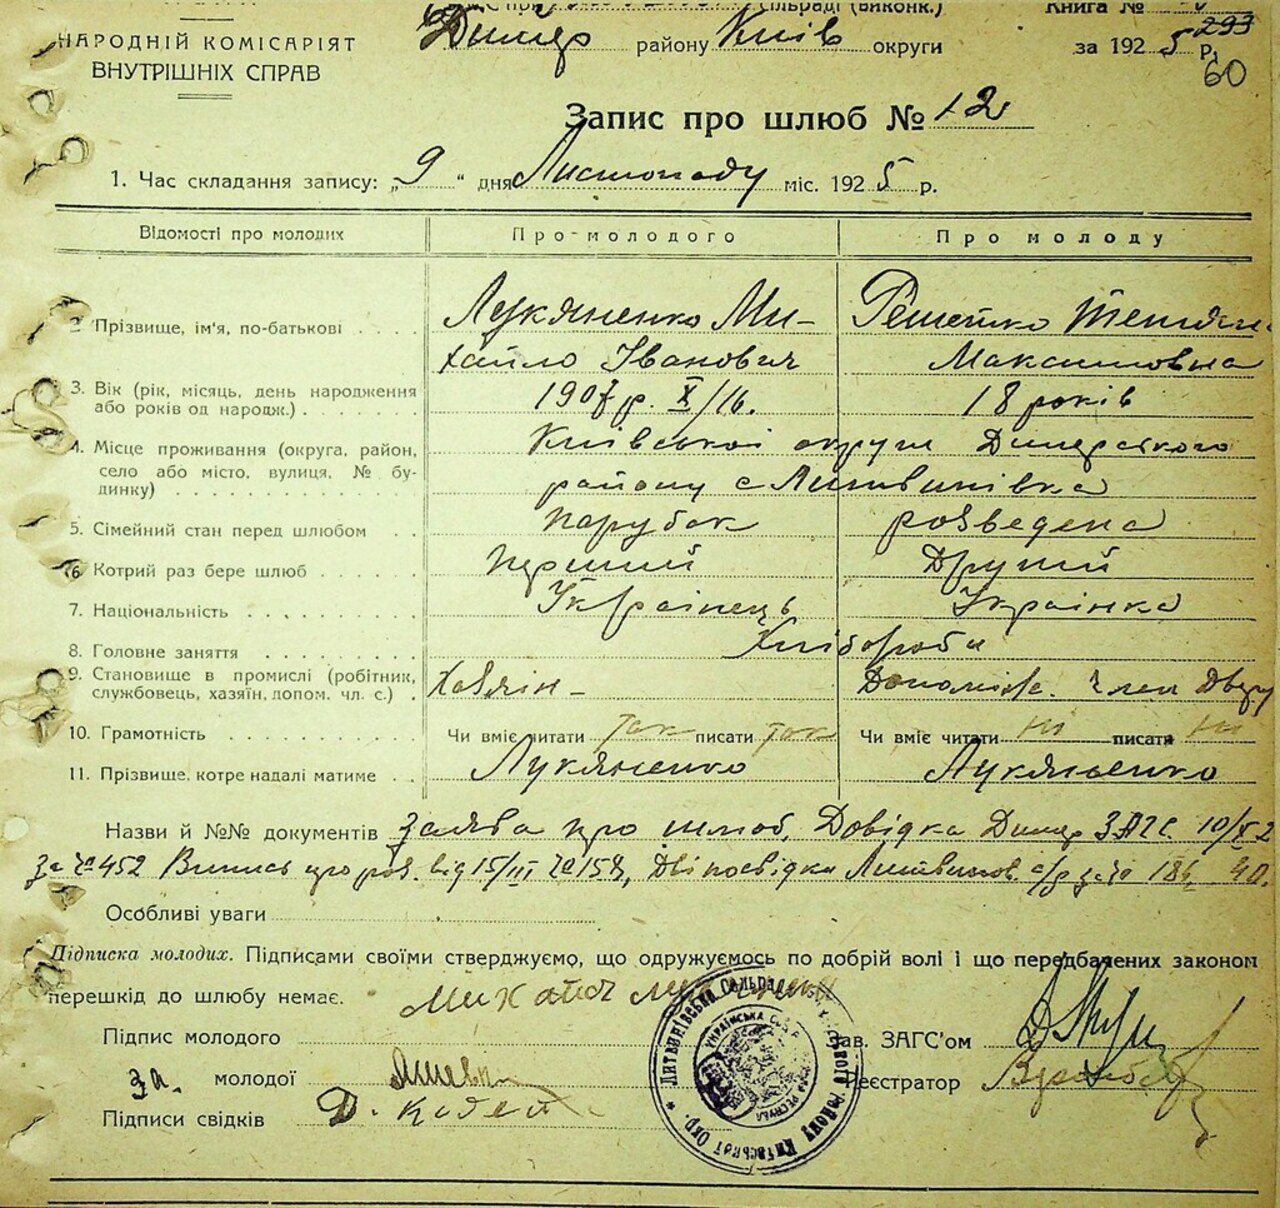 сільраді (виконк.) Книга №
НАРОДНІЙ КОМІСАРІЯТ
ВНУТРІШНІХ СПРАВ
Димер району Київ округи за 1925 р.
293
60
Запис про шлюб № 12
1. Час складання запису: „9“ дня Листопаду міс. 1925 р.
Відомості про молодих Про молодого Про молоду
2. Прізвище, ім'я, по-батькові Лукяненко Ми- Решетко Тетяна
хайло Іванович Максимовна
3. Вік (рік, місяць, день народження або років од народж.) 1907 р. X/16. 18 років
4. Місце проживання (округа, район, село або місто, вулиця, № будинку) Київської округи Димерського
району с Литвинівка
5. Сімейний стан перед шлюбом парубок розведена
6. Котрий раз бере шлюб перший Другий
7. Національність Українець Українка
8. Головне заняття Хлібороби
9. Становище в промислі (робітник, службовець, хазяїн, допом. чл. с.) Хазяін Член Двору
10. Грамотність Чи вміє читати так писати так Чи вміє читати ні писати ні
11. Прізвище, котре надалі матиме Лукяненко Лукяненко
Назви й №№ документів Заява про шлюб, Довідка Димер ЗАГС. 10/X
за № 452 Випись про роз. від 15/III № Дві посвідки Литвинов. с/р за №
Особливі уваги
Підписка молодих. Підписами своїми стверджуємо, що одружуємось по добрій волі і що передбачених законом
перешкід до шлюбу немає.
Підпис молодого Зав. ЗАГС'ом
за молодої Реєстратор
Підписи свідків